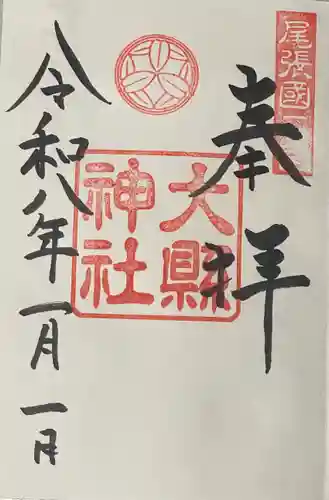 尾張國二
奉拝
大縣神社
令和八年一月一日